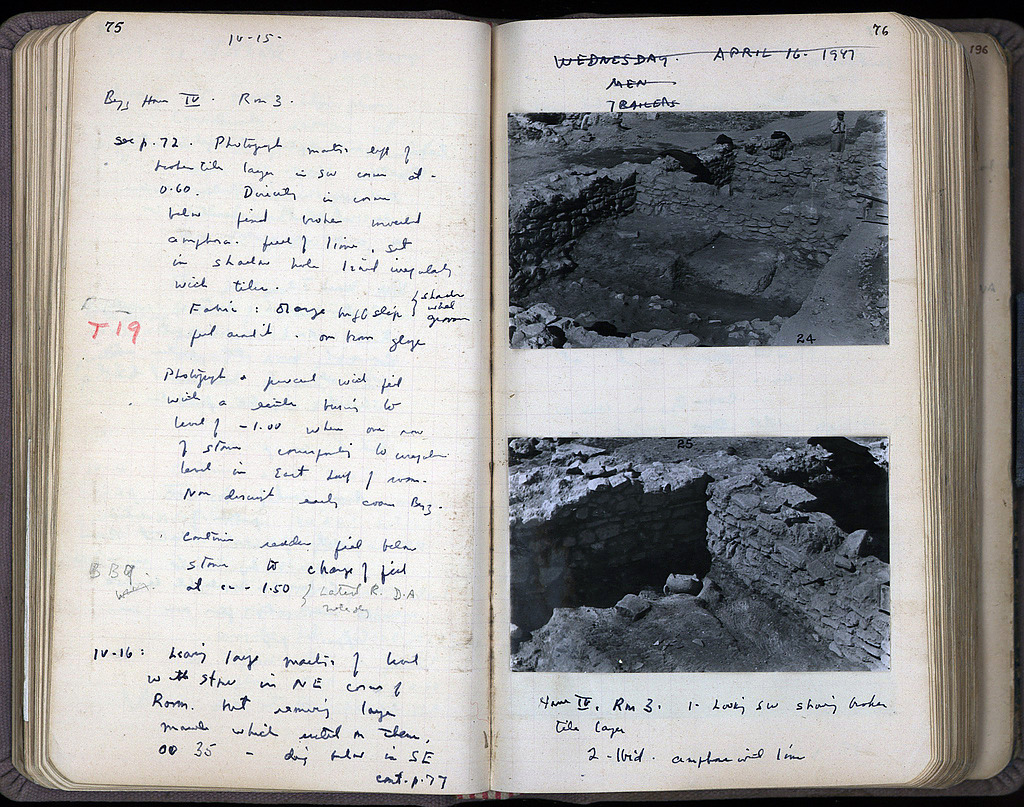 75
IV-15-
Byz House IV. Rm 3.
see p.72. Photograph martis left of
broken tile layer in SW corner at -
0.60. Directly in corner
below find broken inverted
amphora. full of lime, set
in shallow hole lined irregularly
with tiles.
Fabric: Orange buff slip { shallow
wheel
grooves
T19
Photograph & proceed with fill
with a settle basis to
level of -1.00 where one row
of stones corresponding to irregular
level in East half of room.
Non descript early coarse Byz.
Continue reddish fill below
stones to change of fill
BB9
at ca -1.50 { Latest R. D.A
IV-16: Leaving large martis of level
with stones in NE corner of
Room. but removing large
which rested on them,
35 - dig below in SE
cont. p. 77
76
196
WEDNESDAY. APRIL 16. 1947
MEN
TRAILERS
24
25
House IV, Rm 3. 1- Looking SW showing broken
tile layer
2-Ibid. amphora with lime